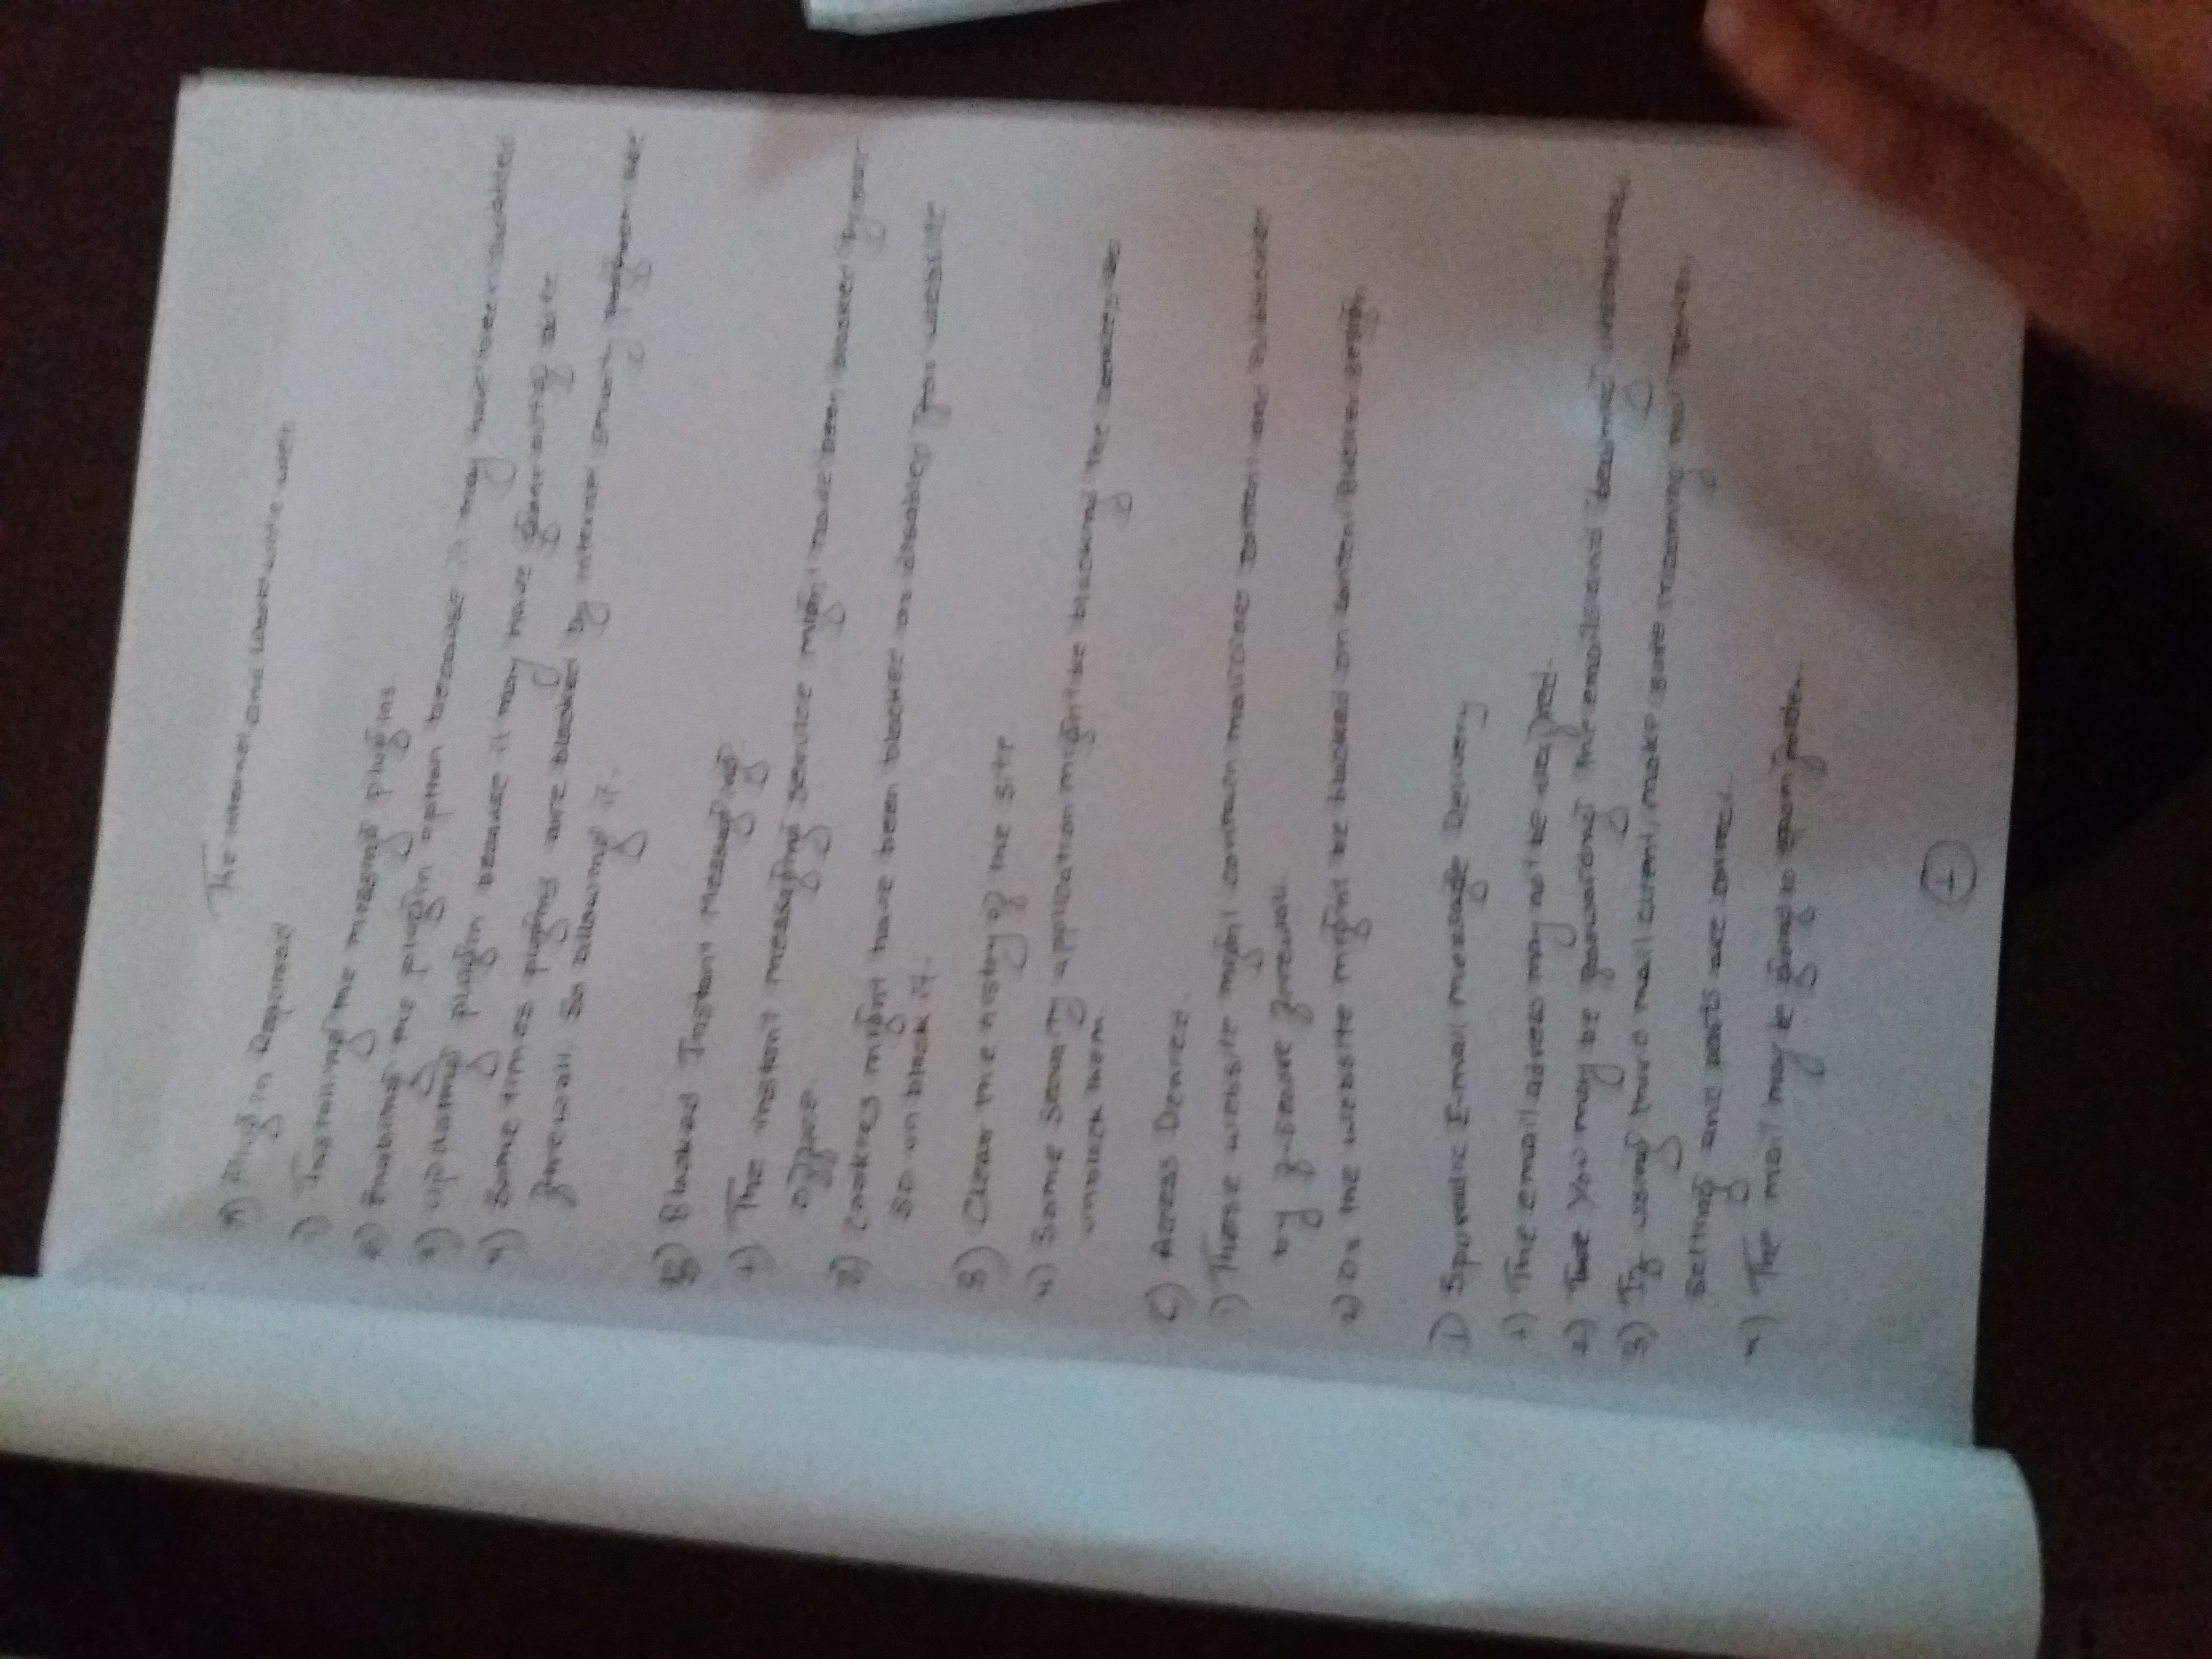 The internet and World wide web
A) Plugin Required
1) Installing the missing plugins.
2) Enabling the plugin option because it may have been disabled
3) Updating plugin because it may have gone out of date
4) Some times plugins are blocked by internet security
firewall. So allowing it.
B) Blocked Instant Messaging
1) The instant messaging service might have been blocked by our
office.
2) Cookies might have been blocked or disabled for website
so un block it.
3) Clear the histoy of the site
4) Some Security application might be blocking the
unblock them.
C) Access Denied.
1) These website might contain content and
by f-secure firewall.
2) Or the website might be blocked on content Blocker
D) Sporadic E-mail message Delivery
1) The email adress may not be verified.
2) You may be forwarding the emails and
3) If using third mail client, make sure incoming mail server
setting and ports are correct.
4) The mail may be going to spam folder.
1